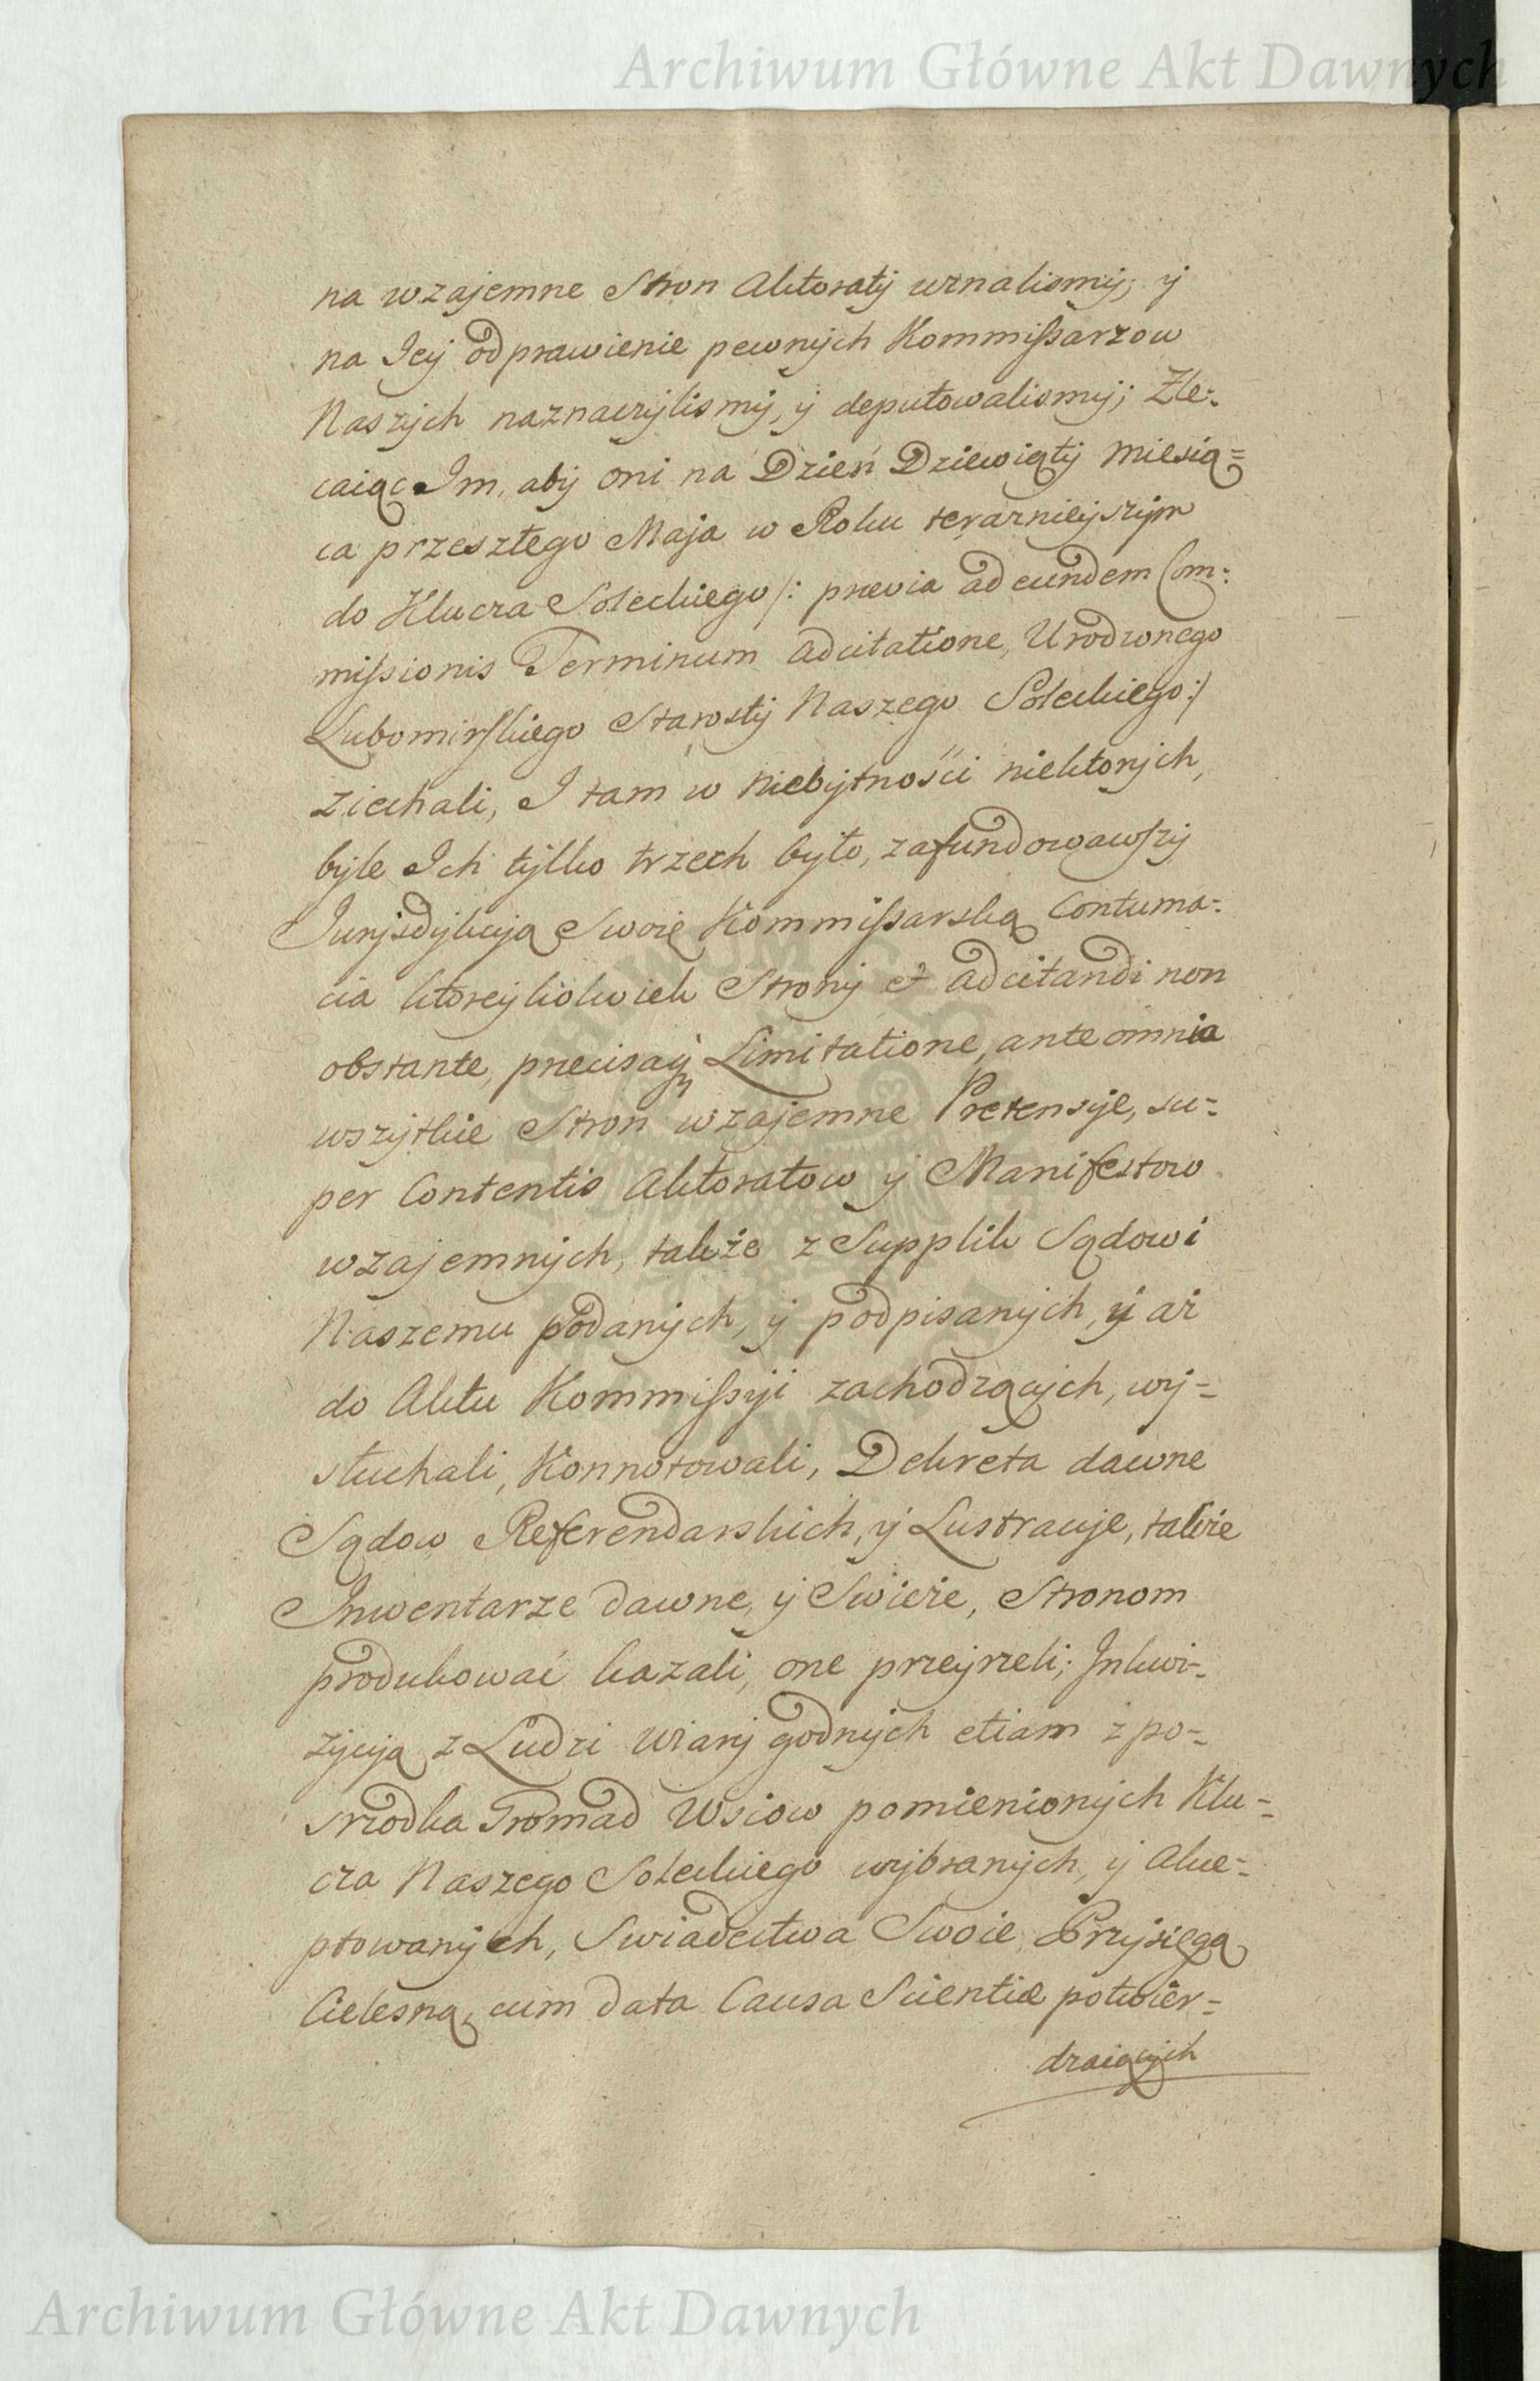 Archiwum Główne Akt Dawnych
na wzajemne Stron Aktoraty uznalismy, y
na Jey odprawienie pewnych Kommissarzow
Naszych naznaczylismy, y deputowalismy; Zle=
caiąc Im, aby oni na Dzień Dziewiąty Miesią=
ca przeszłego Maja w Roku terazniejszym
do Klucza Soleckiego /: prævia ad eundem Com=
missionis Terminum adcitatione, Urodzonego
Lubomirskiego Starosty Naszego Soleckiego :/
ziechali, I tam w niebytnośći niektorych,
byle Ich tylko trzech było, zafundowawszy
Jurysdykcyą Swoię Kommissarską Contuma=
cia ktoreykolwiek Strony et adcitandi non
obstante, præcisa Limitatione, ante omnia
wszytkie Stron wzajemne Pretensye, su=
per Contentis Aktoratow y Manifestow
wzajemnych, także z Supplik Sądowi
Naszemu podanych, y podpisanych, y aż
do Aktu Kommissyi zachodzących, wy=
słuchali, Konnotowali, Dekreta dawne
Sądow Referendarskich, y Lustracye, także
Inwentarze dawne, y Swieże, Stronom
produkować kazali, one przeyrzeli; Inkwi=
zycyą z Ludzi wiary godnych etiam z po=
srzodka Gromad Wsiow pomienionych Klu=
cza Naszego Soleckiego wybranych, y akce=
ptowanych, Swiadectwa Swoie Przysięgą
Cielesną, cum data Causa Scientiæ potwier=
dzaiących
Archiwum Główne Akt Dawnych